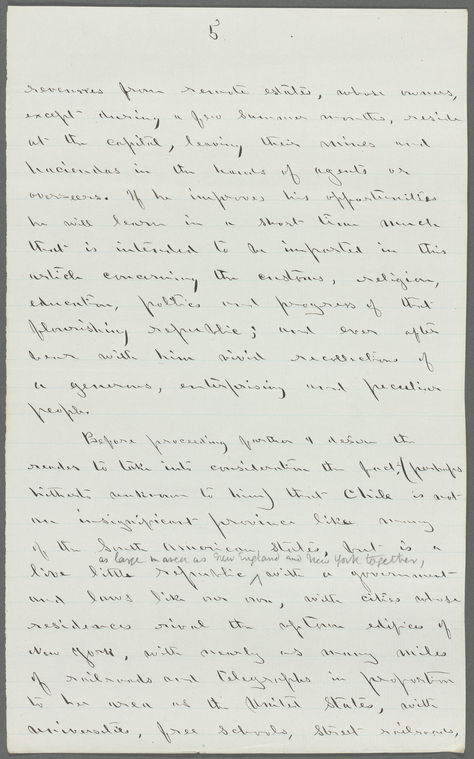 5
revenues from remote estates, whose owners,
except during a few Summer months, reside
at the capital, leaving their mines and
haciendas in the hands of agents or
overseers. If he improves his opportunities
he will learn in a short time much
that is intended to be imparted in this
article concerning the customs, religion,
education, politics and progress of that
flourishing republic; and ever after
bear with him vivid recollections of
a generous, enterprising and peculiar
people.
Before proceeding further I desire the
reader to take into consideration the fact, (perhaps
hitherto unknown to him) that Chile is not
an insignificant province like many
of the South American States, but is a
as large in area as New England and New York together,
live little republic, with a government
and laws like our own, with cities whose
residences rival the uptown edifices of
New York, with nearly as many miles
of railroads and telegraphs in proportion
to her area as the United States, with
universities, free schools, street railroads,